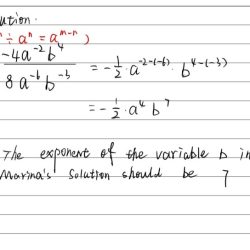 ution.
÷ aⁿ = a^(m-n) )
-4a^-2 b^4 / 8a^-6 b^-3 = -1/2 · a^(-2-(-6)) · b^(4-(-3))
= -1/2 · a^4 b^7
The exponent of the variable b in
Marina's solution should be 7